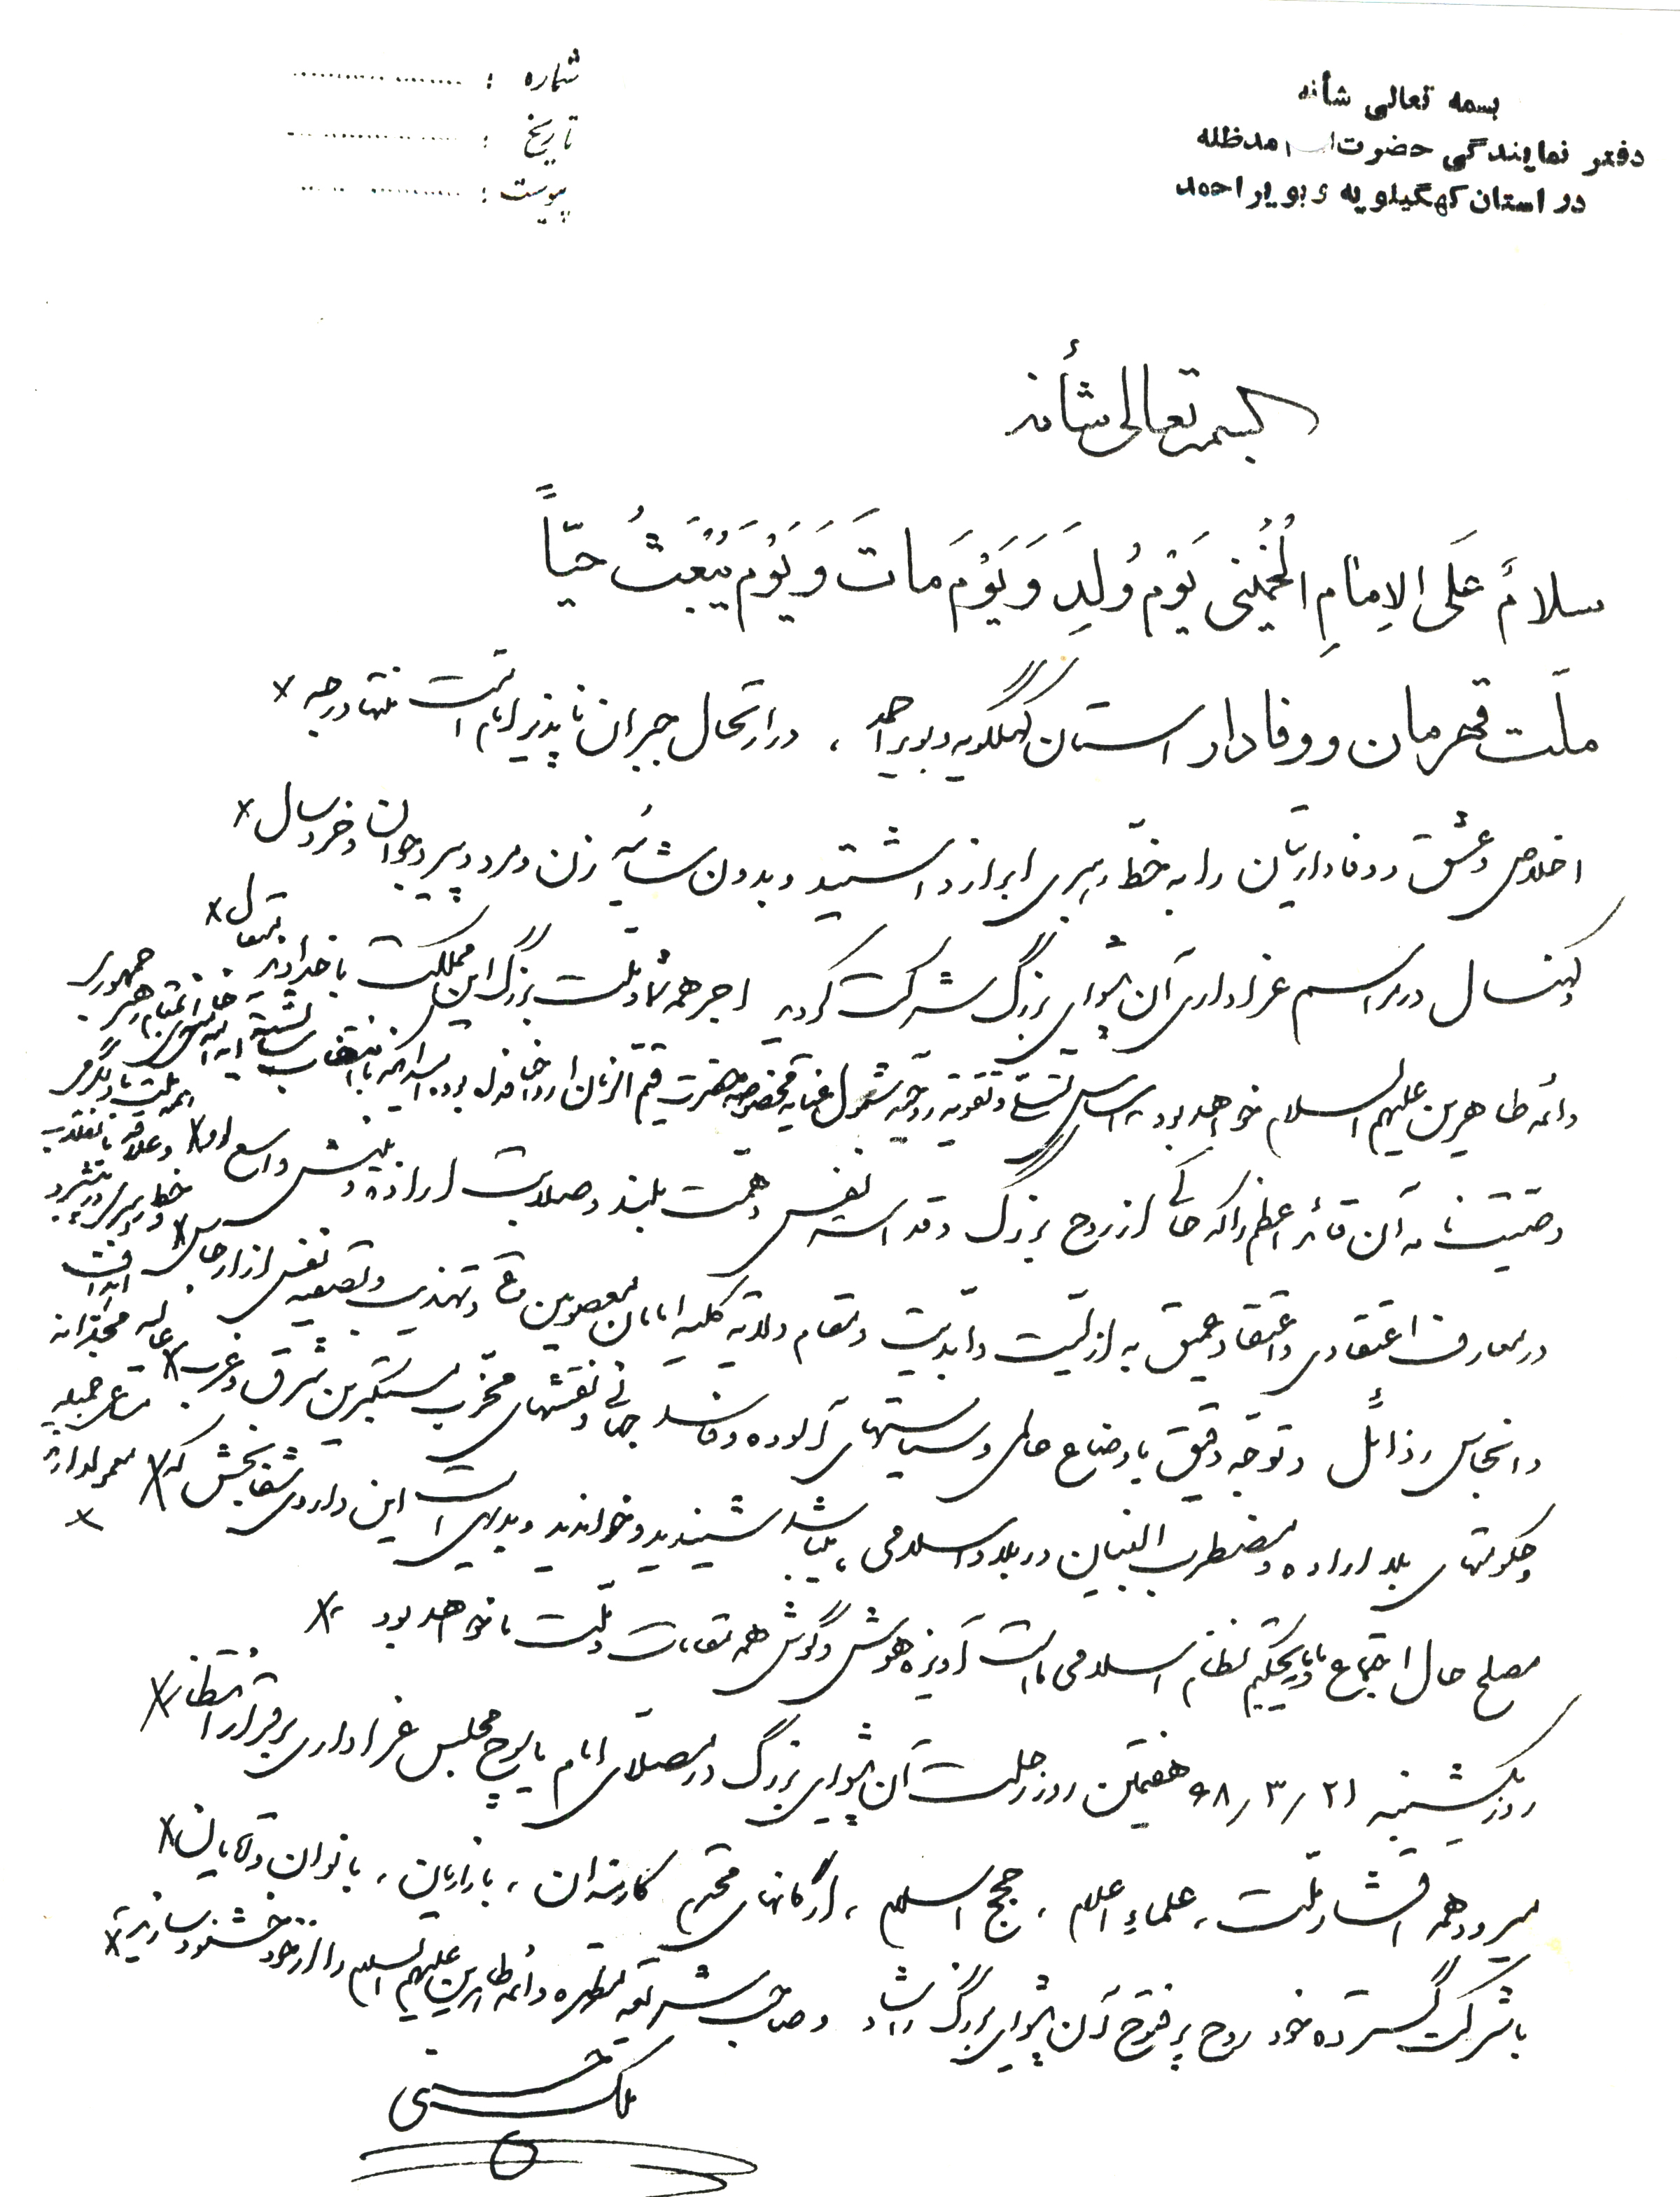 بسمه تعالی شأنه
دفتر نمایندگی حضرت مدظله
در استان کهگیلویه و بویراحمد
شماره :
تاریخ :
پیوست :
بسمه تعالی شأنه
سلامٌ عَلَی الاِمامِ الخُمُینی یَوْم وُلِدَ وَ یَوْمَ ماتَ وَ یَوْمَ یُبْعَثُ حیّاً
ملّت قهرمان و وفادار استان کهگیلویه و بویراحمد ، در ارتحال جبران ناپذیر امام امّت منتها درجه
اخلاص و عشق و وفاداریتان را به خطّ رهبری ابراز داشتید و بدون شائبه زن و مرد و پیر و جوان و خردسال
و کهنسال در مراسم عزاداری آن پیشوای بزرگ شرکت کردید اجر همه شما و ملّت بزرگ این مملکت با خداوند متعال
و ائمه طاهرین علیهم السلام خواهد بود
وصیّتنامه آن قائد اعظم را که حاکی از روح بزرگ و قداست نفس و همّت بلند و صلابت اراده و بینش واسع او
در معارف اعتقادی و اعتقاد عمیق به ازلیّت و ابدیّت و مقام ولایة کلیه امامان معصومین ع و تهذیب و تصفیه نفس از ارجاس
و انجاس رذائل و توجّه دقیق باوضاع عالمی و سیاستهای آلوده و فاسد جهانی و نقشهای مخرّب مستکبرین شرق و غرب
و حکومتهای بلا اراده و مضطرب البنیان در بلاد اسلامی ، میباشد شنیدید و خواندید و بدیهی است این داروی شفابخش که
مصلح حال اجتماع ما و تحکیم نظام اسلامی ما است آویزه هوش و گوش همه مقامات و ملّت ما خواهد بود
روز یکشنبه ۶۸/۳/۲۱ هفتمین روز رحلت آن پیشوای بزرگ در مصلّای امام یاسوج مجلس عزاداری برقرار انتظار
میرود همه اقشار ملّت ، علماءِ اعلام ، حجج اسلام ، ارگانهای محترم کارمندان ، بازاریان ، بانوان و آقایان
با شرکت گسترده خود روح پرفتوح آن پیشوای بزرگ را شاد و صاحب شریعة مطهره و ائمه طاهرین علیهم السلام را از خود خشنود سازند
ملک حسینی